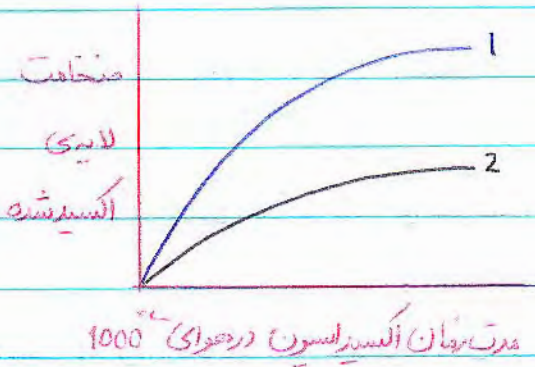 ضخامت
لایه‌ی
اکسید شده
1
2
مدت زمان اکسیداسیون در هوای 1000°C